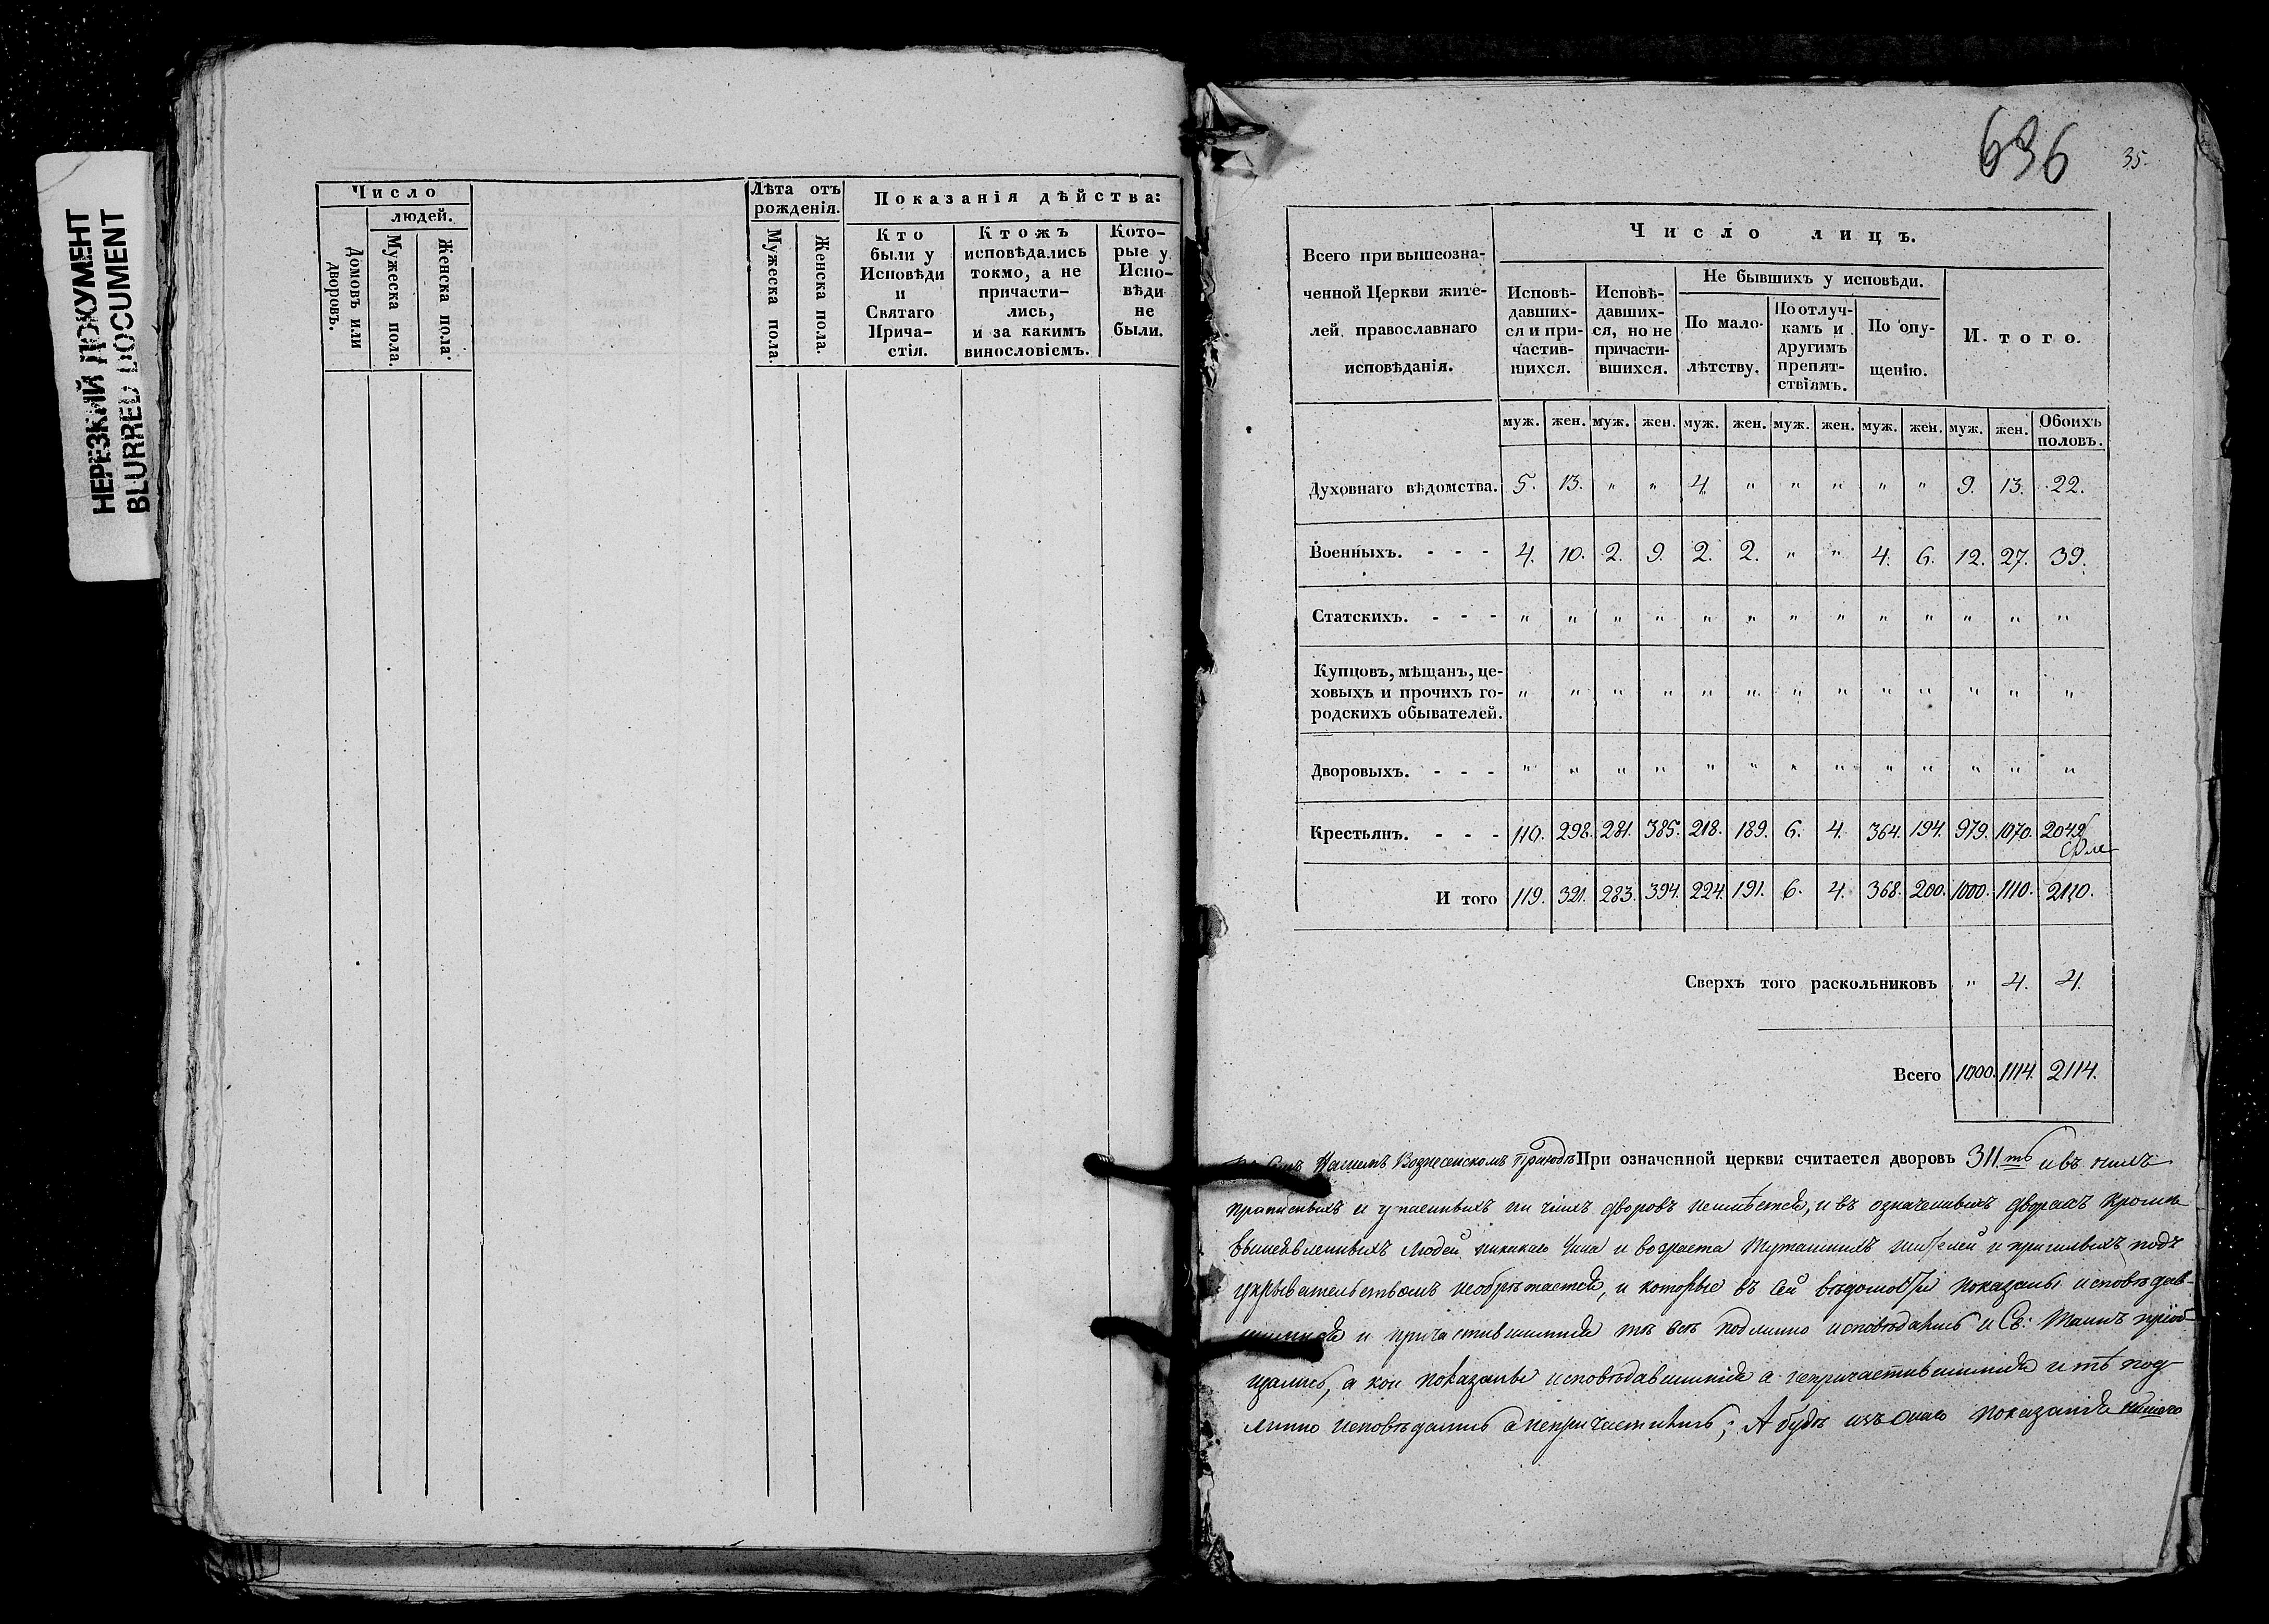 НЕРЕЗКИЙ ДОКУМЕНТ
BLURRED DOCUMENT
Число
людей.
Домовъ или дворовъ.
Мужеска пола.
Женска пола.
Лѣта отъ рожденія.
Мужеска пола.
Женска пола.
Показанія дѣйства:
Кто были у Исповѣди и Святаго Причастія.
Ктожъ исповѣдались токмо, а не причасти-лись, и за какимъ винословіемъ.
Кото-рые у Испо-вѣди не были.
636 35.
Всего при вышеозна-
ченной Церкви жите-
лей православнаго
исповѣданія.
Число лицъ.
Исповѣ-давших-ся и при-частив-шихся.
Исповѣ-давших-ся, но не причасти-вшихся.
Не бывшихъ у исповѣди.
По мало-лѣтству.
По отлуч-камъ и другимъ препят-ствіямъ.
По опу-щенію.
И того.
муж. жен. муж. жен. муж. жен. муж. жен. муж. жен. муж. жен. Обоихъ половъ.
Духовнаго вѣдомства. 5. 13. " " 4. " " " " " 9. 13. 22.
Военныхъ. - - - 4. 10. 2. 9. 2. 2. " " 4. 6. 12. 27. 39.
Статскихъ. - - - " " " " " " " " " " " " "
Купцовъ, мѣщанъ, це-
ховыхъ и прочихъ го- " " " " " " " " " " " " "
родскихъ обывателей.
Дворовыхъ. - - - " " " " " " " " " " " " "
Крестьянъ. - - - 110. 298. 281. 385. 218. 189. 6. 4. 364. 194. 979. 1070. 2049
И того 119. 321. 283. 394. 224. 191. 6. 4. 368. 200. 1000. 1110. 2110.
Сверхъ того раскольниковъ " 4. 4.
Всего 1000. 1114. 2114.
Нашемъ Вознесенскомъ При означенной церкви считается дворовъ 311ть и въ нихъ
прописныхъ и утаенныхъ ни чьихъ дворовъ неимѣется, и въ означенныхъ дворахъ кромѣ
людей никакого чина и возраста жителей и подъ
укрывательствомъ необрѣтается, и которые въ сей вѣдомости показаны исповѣдав-
и причастившимися тѣ всѣ подлинно исповѣдались и Св: Таинъ пріоб-
щались, а кои показаны исповѣдавшимися а непричастившимися и тѣ под-
линно исповѣдались а непричастились; А буде изъ онаго показанія